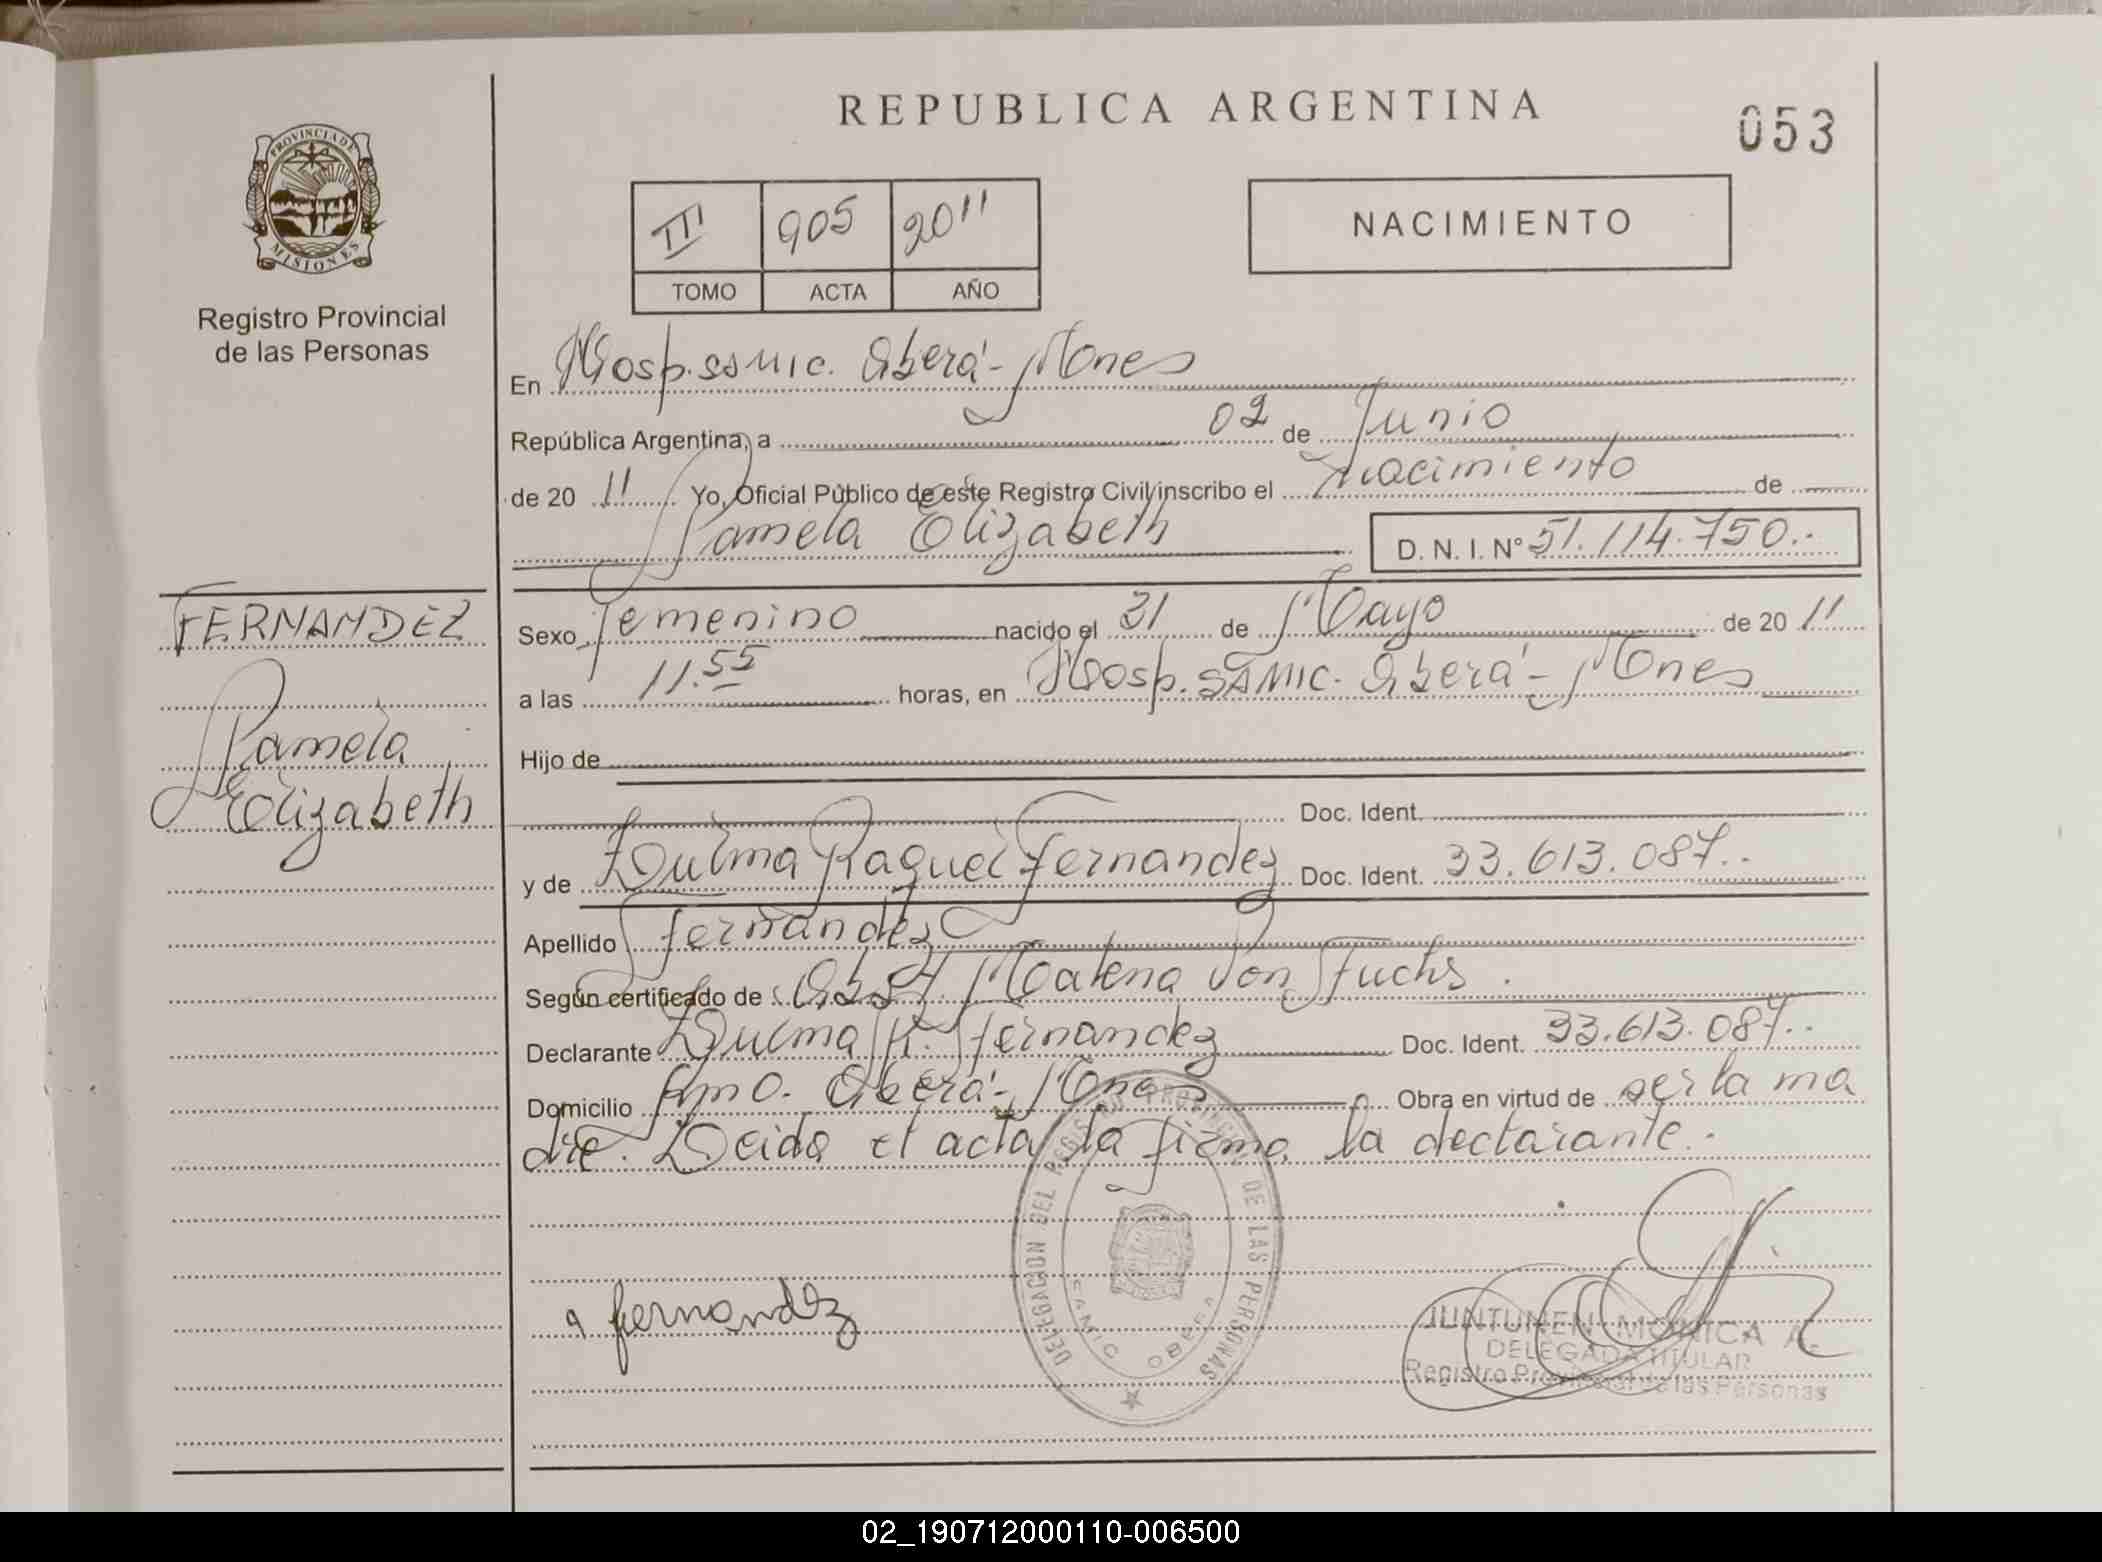 REPUBLICA ARGENTINA
053
PROVINCIA DE
MISIONES
Registro Provincial
de las Personas
III 905 2011
TOMO ACTA AÑO
NACIMIENTO
En Hosp. SAMIC. Oberá - Mnes
República Argentina, a 02 de Junio
de 20 11 Yo, Oficial Público de este Registro Civil inscribo el Nacimiento de
Pamela Elizabeth D. N. I. Nº 51.114.750..
FERNANDEZ
Pamela
Elizabeth
Sexo Femenino nacido el 31 de Mayo de 20 11
a las 11.55 horas, en Hosp. SAMIC. Oberá - Mnes
Hijo de
Doc. Ident.
y de Zulma Raquel Fernandez Doc. Ident. 33.613.087..
Apellido Fernandez
Según certificado de : Obst/ Malena Von Fuchs.
Declarante Zulma R. Fernandez Doc. Ident. 33.613.087..
Domicilio Oberá - Mnes Obra en virtud de ser la ma
dre. Leida el acta la firma la declarante.-
DELEGACION DEL REGISTRO PROVINCIAL DE LAS PERSONAS
fernandez
JUNTUNEN MONICA A.
DELEGADA TITULAR
Registro Provincial de las Personas
02_190712000110-006500